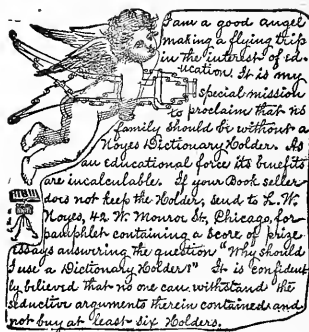 I am a good angel
making a flying trip
in the interest of ed-
ucation. It is my
special mission
to proclaim that no
family should be without a
Noyes Dictionary Holder. As
an educational force its benefits
are incalculable. If your Book seller
does not keep the Holder, send to L. W.
Noyes, 42 W. Monroe St., Chicago, for
pamphlet containing a score of prize
essays answering the question "Why should
I use a Dictionary Holder?" It is confident
ly believed that no one can withstand the
seductive arguments therein contained and
not buy at least six Holders.